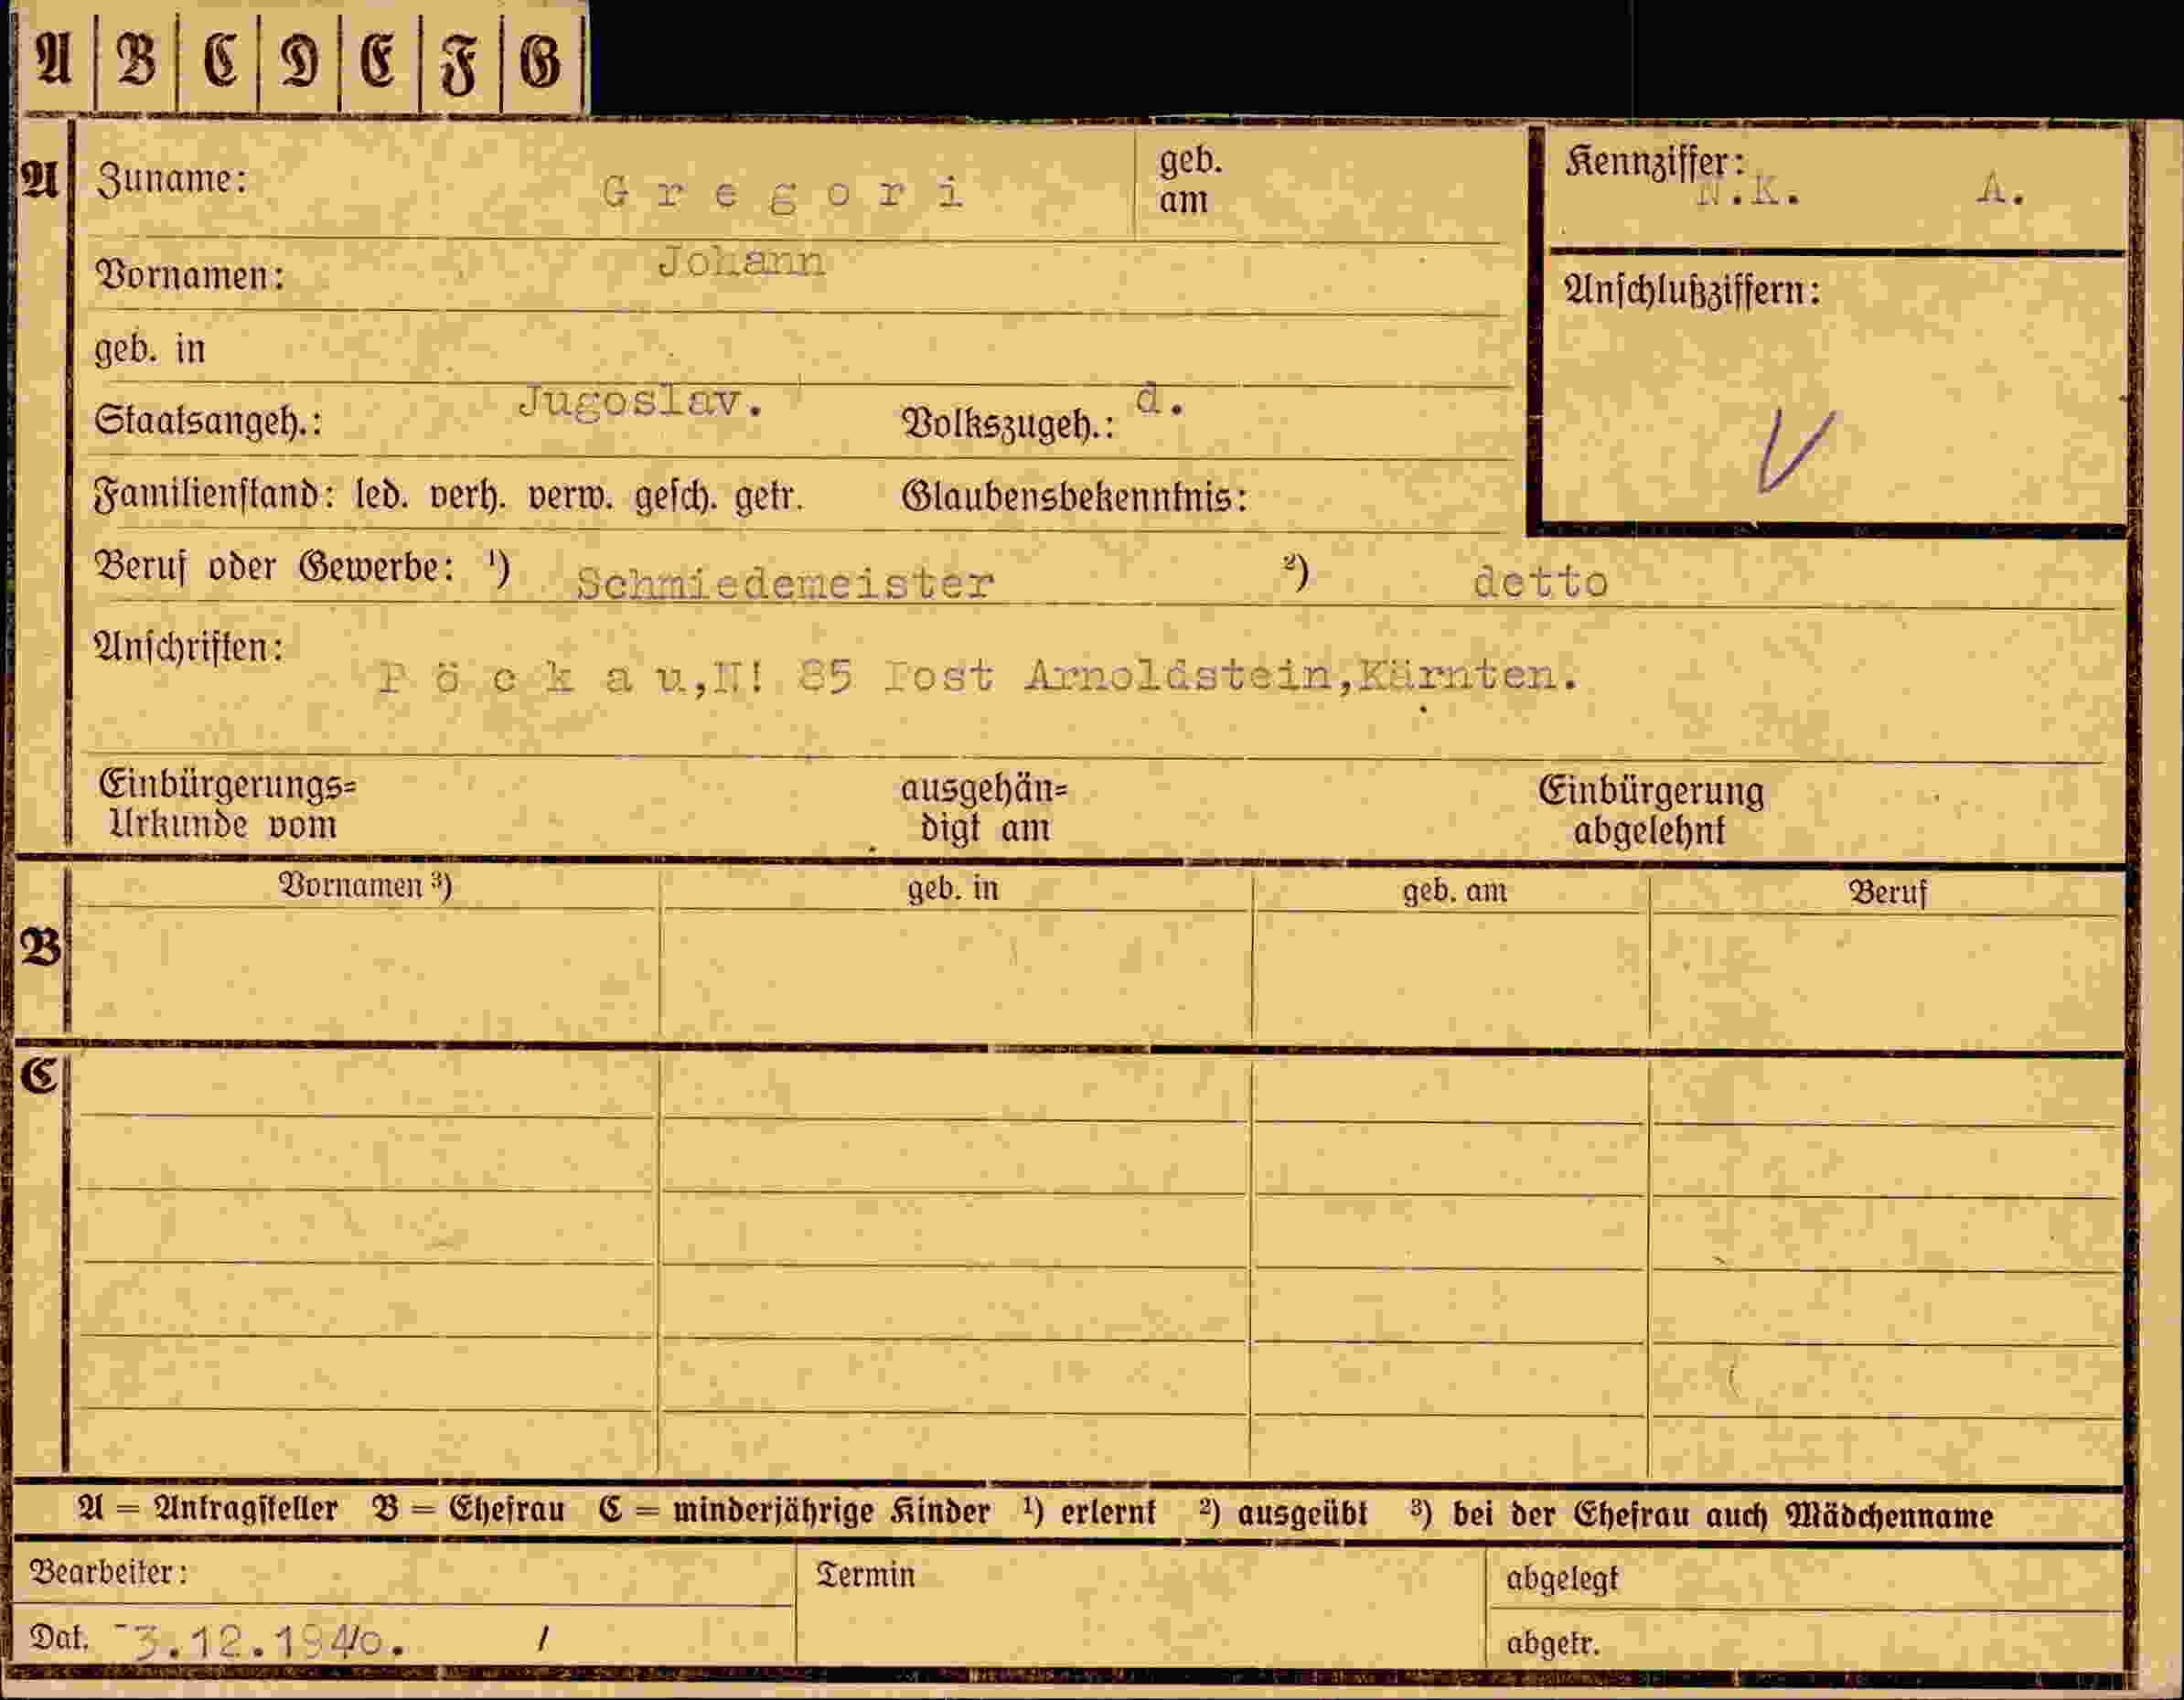 A B C D E F G
A Zuname: Gregori geb. am
Kennziffer: N.K. A.
Vornamen: Johann
Anschlußziffern:
geb. in
Staatsangeh.: Jugoslav. Volkszugeh.: d.
V
Familienstand: led. verh. verw. gesch. getr. Glaubensbekenntnis:
Beruf oder Gewerbe: ¹) Schmiedemeister ²) detto
Anschriften: Pöckau,N! 85 Post Arnoldstein,Kärnten.
Einbürgerungs= ausgehän= Einbürgerung
Urkunde vom digt am abgelehnt
Vornamen ³) geb. in geb. am Beruf
B
C
A = Antragsteller B = Ehefrau C = minderjährige Kinder ¹) erlernt ²) ausgeübt ³) bei der Ehefrau auch Mädchenname
Bearbeiter: Termin abgelegt
Dat. 3.12.1940. / abgetr.